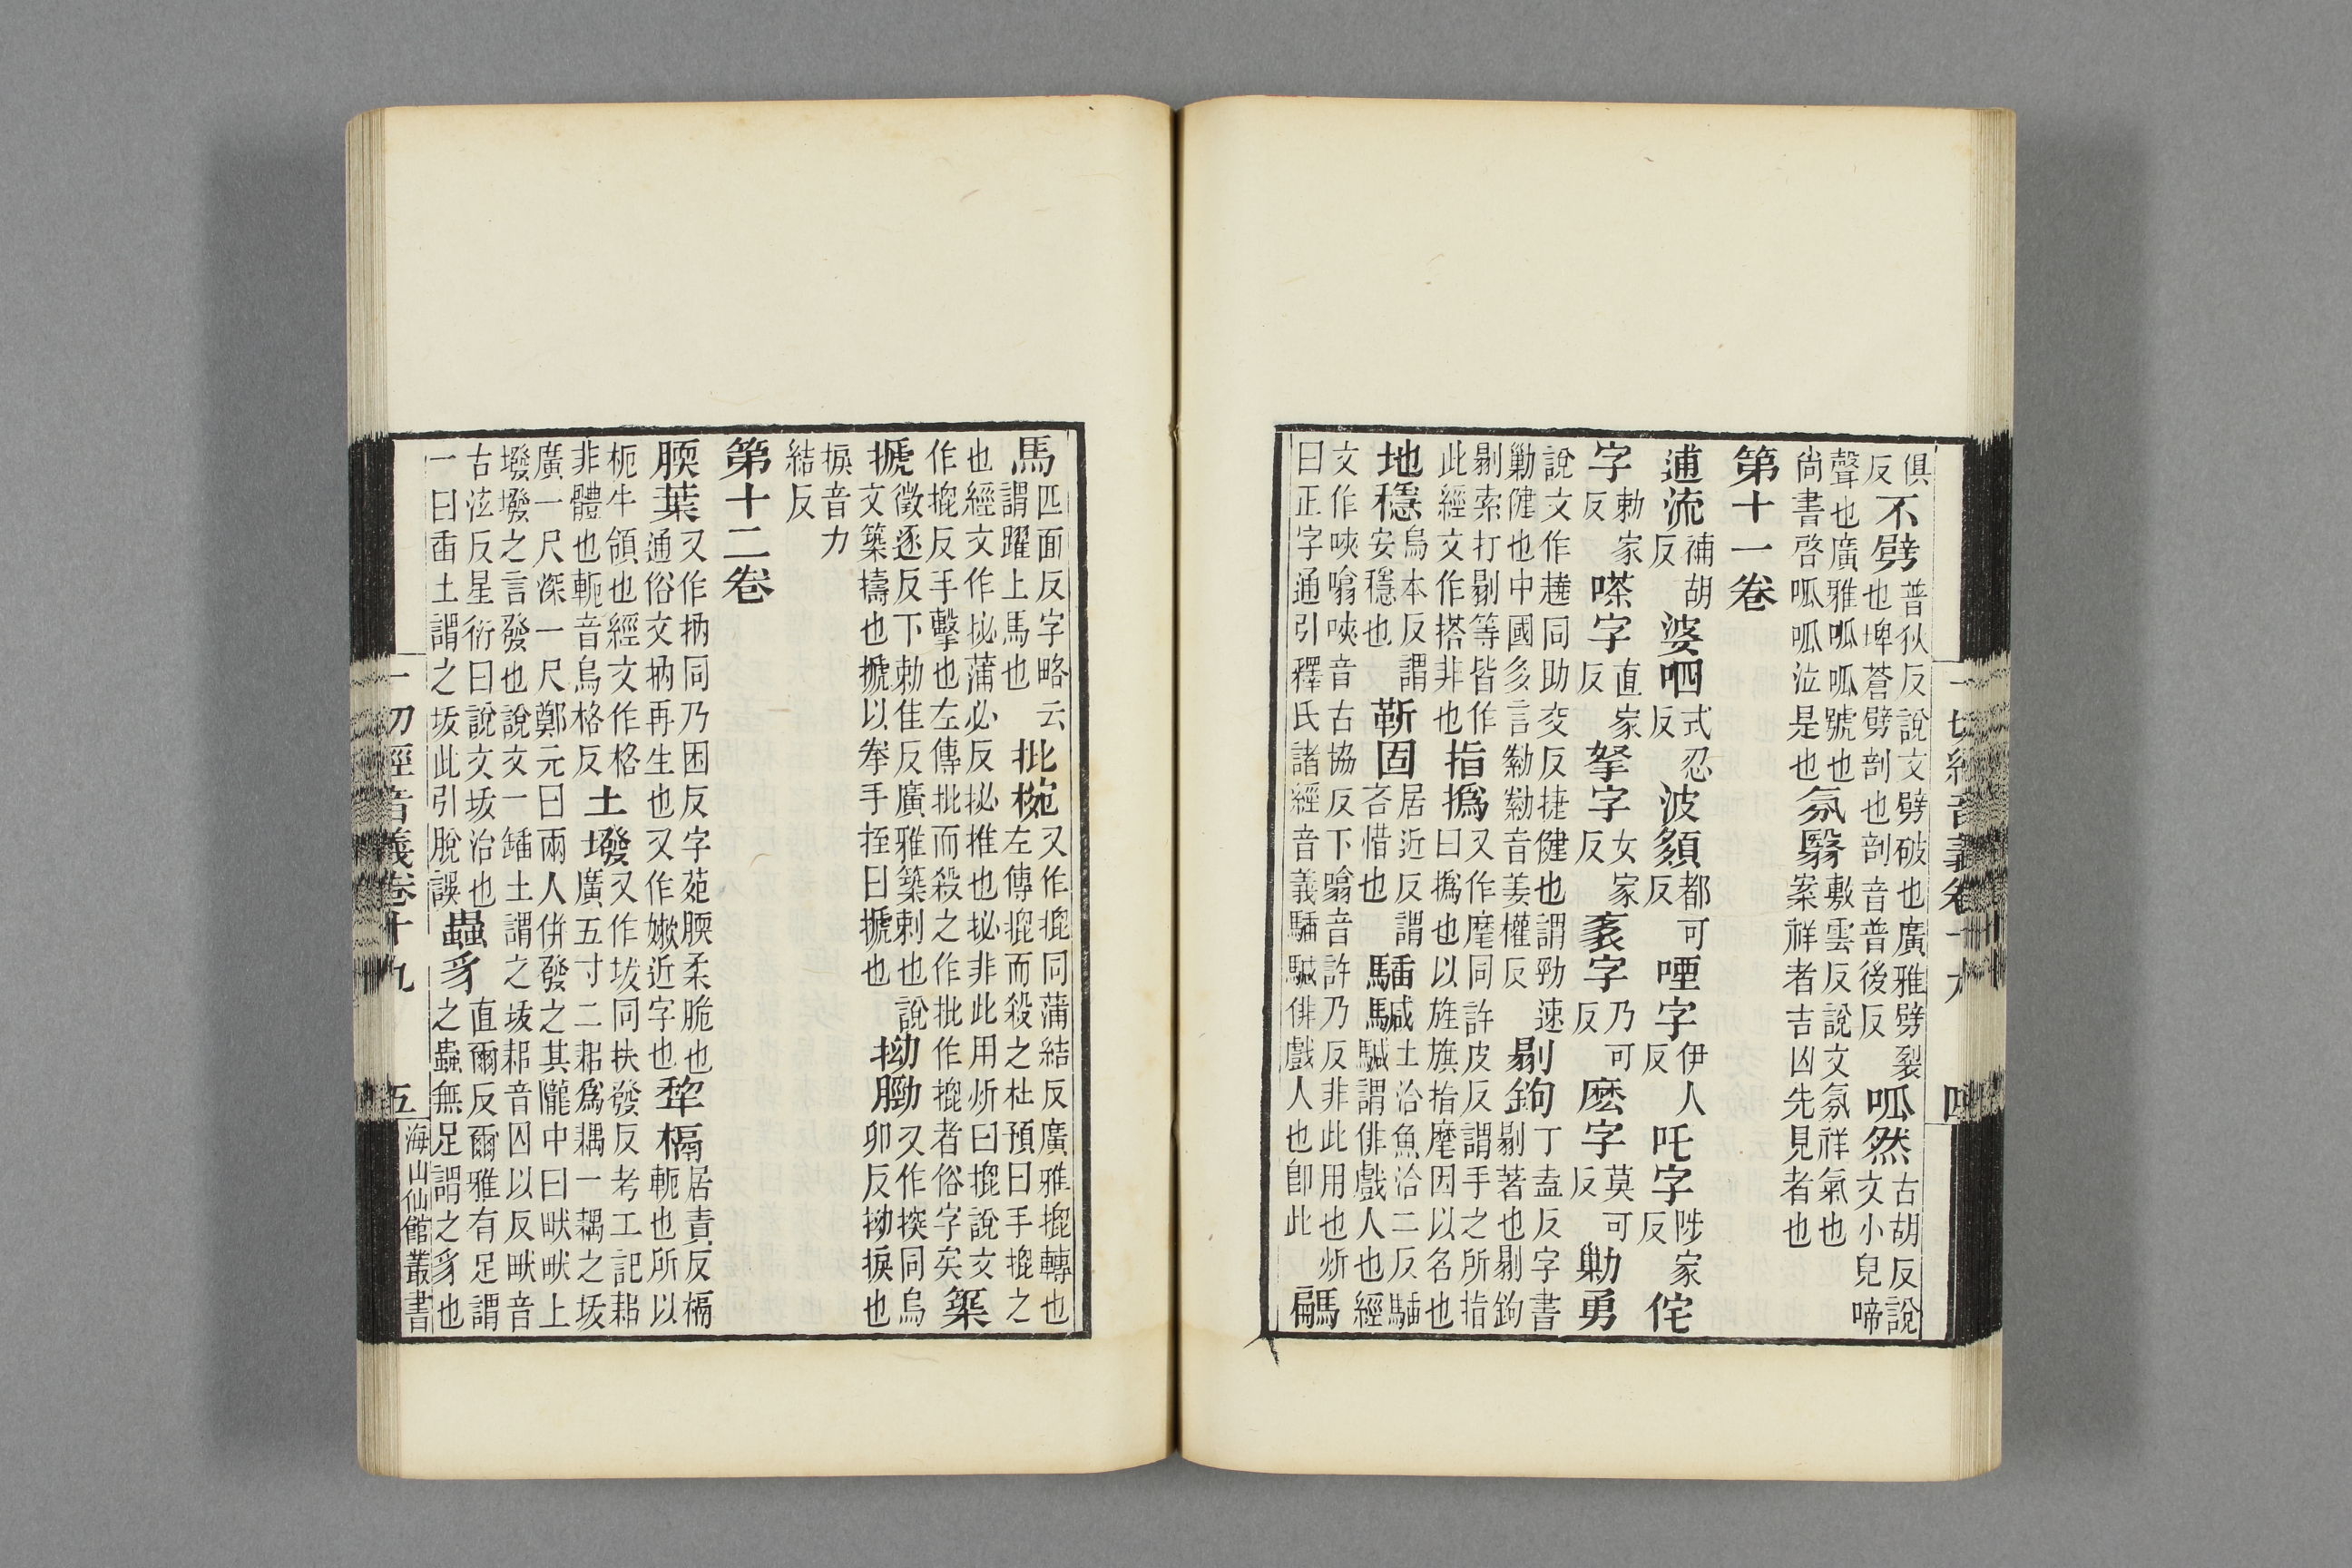 一切經音義卷十九 四
俱反不劈普狄反說文劈破也廣雅劈裂也埤蒼劈剖也剖音普後反呱然古胡反說文小兒啼
聲也廣雅呱呱號也尙書啓呱呱泣是也氛翳敷雲反說文氛祥氣也案祥者吉凶先見者也
第十一卷
逋流補胡反婆呬式忍反波頦都可反堙字伊人反吒字陟家反侘
字勅家反㗌字直家反拏字女家反袲字乃可反麽字莫可反勦勇
說文作同助交反捷健也謂勁速勦健也中國多言音姜權反剔鉤丁盍反字書剔著也剔鉤
剔索打剔等皆作此經文作搭非也指撝又作麾同許皮反謂手之所指曰撝也以旌旗指麾因以名也
地穩烏本反謂安穩也靳固居近反謂吝惜也土洽魚洽二反謂俳戲人也經
文作唊噏唊音古協反下噏音許乃反非此用也炘曰正字通引釋氏諸經音義俳戲人也卽此騗
馬匹面反字略云謂躍上馬也批㧾又作㧙同蒲結反廣雅㧙轉也左傳㧙而殺之杜預曰手㧙之
也經文作抋蒲必反抋推也抋非此用炘曰㧙說文作㧙反手擊也左傳批而殺之作批作㧙者俗字矣築
搋徵逐反下勅佳反廣雅築刺也說文築擣也搋以拳手挃曰搋也拗䏰又作㧡同烏卯反拗捩也
捩音力結反
第十二卷
腝葉又作抐同乃困反字苑腝柔脆也通俗文抐再生也又作嫰近字也犂槅居責反槅軛也所以
枙牛領也經文作格非體也軛音烏格反土墢又作坺同扶發反考工記耜廣五寸二耜爲耦一耦之坺
廣一尺深一尺鄭元曰兩人併發之其隴中曰畎畎上墢墢之言發也說文一鍤土謂之坺耜音囚以反畎音
古泫反星衍曰說文坺治也一曰臿土謂之坺此引脫誤蟲豸直爾反爾雅有足謂之蟲無足謂之豸也
一切經音義卷十九 五 海山仙館叢書